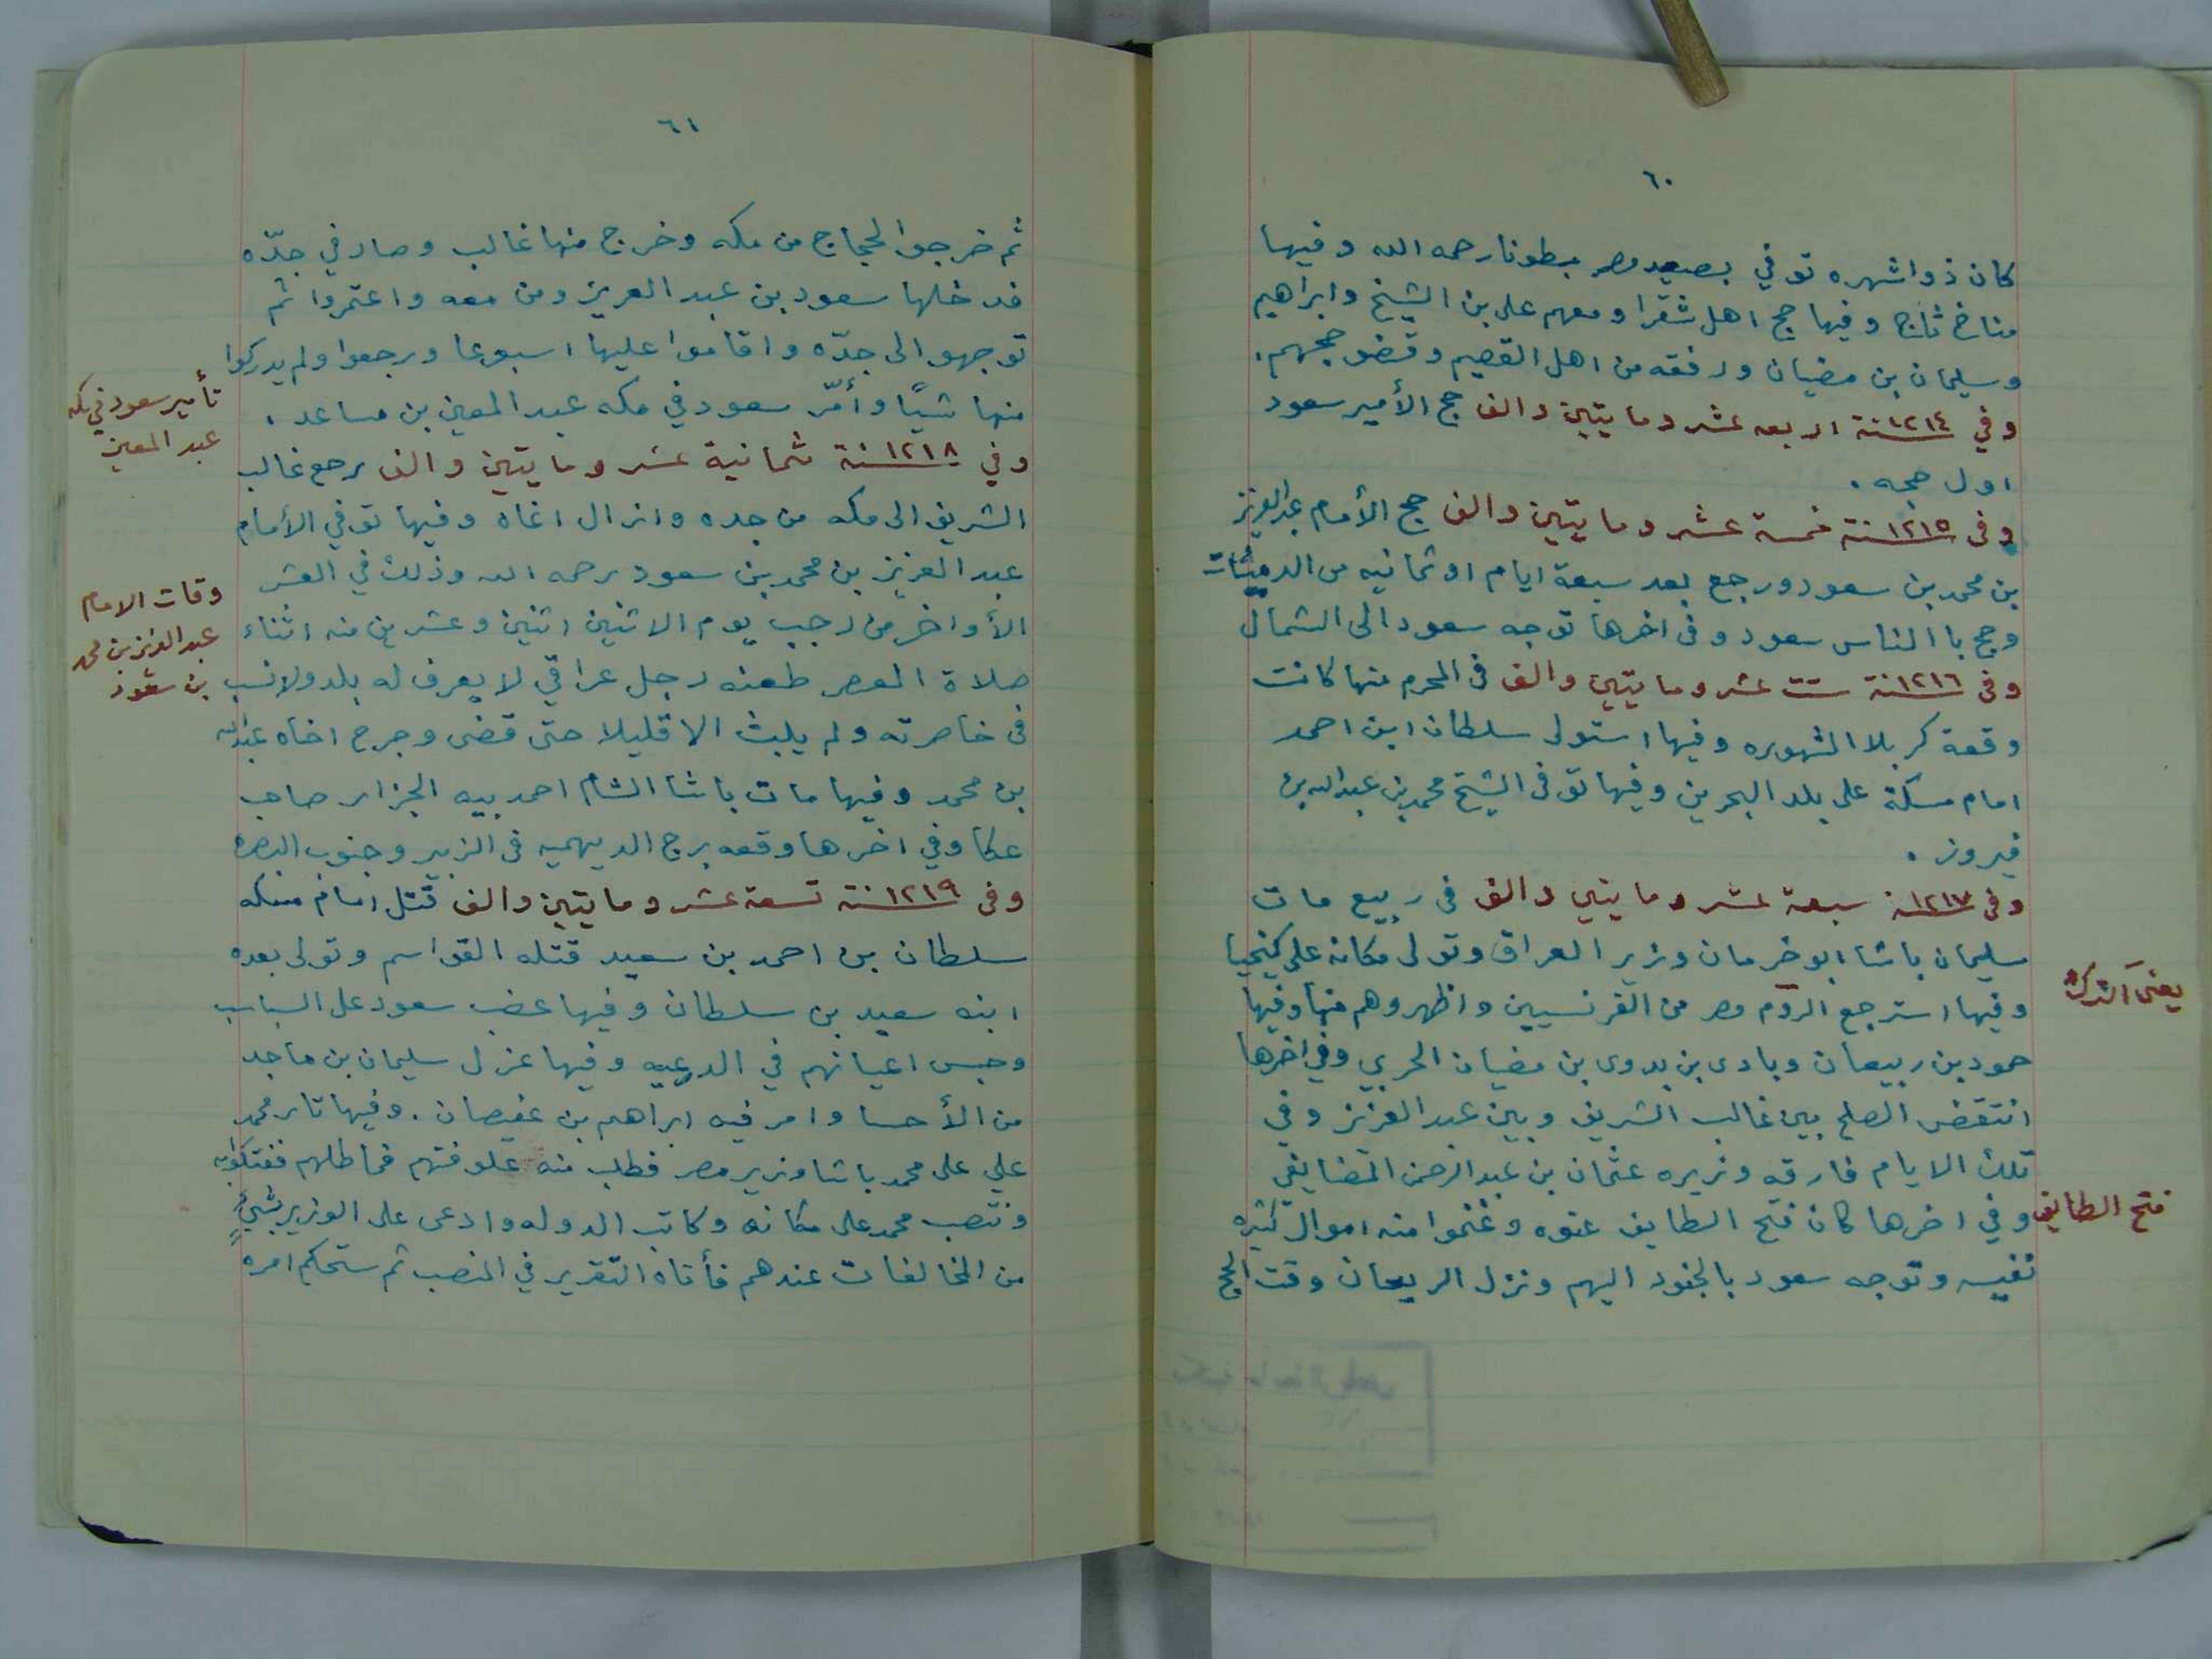 ٦٠
كان ذوا شهره توفي بصعيد مصر مبطونا رحمه الله وفيها
مناخ ثاج وفيها حج اهل شقرا ومعهم علي بن الشيخ وابراهيم
وسليمان بن مضيان ورفقه من اهل القصيم وقضو حجهم .
وفي ١٢١٤سنة اربعه عشر ومايتين والف حج الأمير سعود
اول حجه .
وفى ١٢١٥سنة خمسة عشر ومايتين والف حج الأمام عبدالعزيز
بن محمد بن سعود ورجع بعد سبعة ايام او ثمانيه من
وحج با الناس سعود وفى اخرها توجه سعود الى الشمال
وفى ١٢١٦سنة ست عشر ومايتين والف فى المحرم منها كانت
وقعة كربلا الشهوره وفيها استولى سلطان ابن احمد
امام مسكة على بلد البحرين وفيها توفى الشيخ محمد بن عبدالله بن
فيروز .
وفى ١٢١٧سنة سبعة عشر ومايتين والف فى ربيع مات
سليمان باشا ابو خرمان وزير العراق وتولى مكانه علي كيخيا
وفيها استرجع الروم مصر من الفرنسيين واظهروهم منها وفيها
يعنى الترك
حمود بن ربيعان وبادى بن بدوى بن مضيان الحربي وفي اخرها
انتقض الصلح بين غالب الشريف وبين عبد العزيز وفي
تلك الايام فارقه وزيره عثمان بن عبد الرحمن المضايفي
فتح الطايف
وفي اخرها كان فتح الطايف عنوه وغنموا منه اموال كثيره
نفيسه وتوجه سعود بالجنود اليهم ونزل الريعان وقت الحج
٦١
ثم خرجوا الحجاج من مكه وخرج منها غالب وصار في جدّه
فدخلها سعود بن عبد العزيز ومن معه واعتمروا ثم
توجهو الى جدّه واقاموا عليها اسبوعا ورجعوا ولم يدركوا
منها شيًا وأمّر سعود في مكه عبد المعين بن مساعد .
تأمير سعود في مكه
عبد المعين
وفي ١٢١٨سنة ثمانية عشر ومايتين والف رجع غالب
الشريف الى مكه من جده وانزال اغاه وفيها توفي الأمام
عبد العزيز بن محمد بن سعود رحمه الله وذلك في العشر
الأواخر من رجب يوم الاثنين اثنين وعشرين منه اثناء
وفات الامام
عبد العزيز بن محمد
بن سعود
صلاة العصر طعنه رجل عراقي لا يعرف له بلد ولانسب
فى خاصرته ولم يلبث الا قليلا حتى قضى وجرح اخاه عبدالله
بن محمد وفيها مات باشا الشام احمد بيه الجزار صاحب
عكا وفي اخرها وقعه برج الديهميه فى الزبير وجنوب البصره
وفى ١٢١٩سنة تسعة عشر ومايتين والف قتل امام مسكه
سلطان بن احمد بن سعيد قتله القواسم وتولى بعده
ابنه سعيد بن سلطان وفيها غضب سعود على
وحبس اعيانهم في الدرعيه وفيها عزل سليمان بن ماجد
من الأحسا وامر فيه ابراهم بن عفيصان . وفيها ثار محمد
علي على محمد باشا وزير مصر فطلب منه علوفتهم فماطلهم ففتكوابه
ونتصب محمد على مكانه وكاتب الدوله وادعى على الوزير بشيءٍ
من المخالفات عندهم فأتاه التقرير في المنصب ثم ستحكم امره